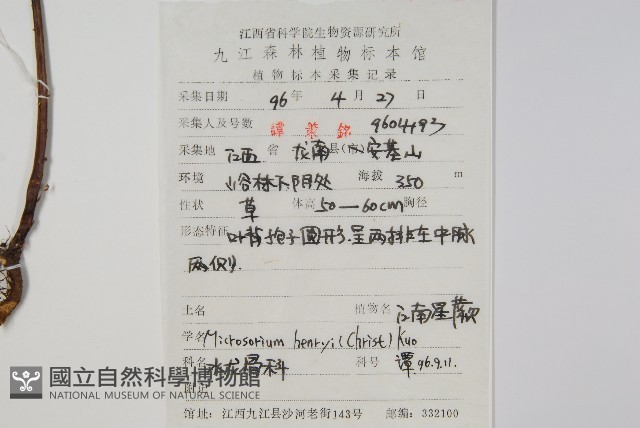 江西省科学院生物资源研究所
九江森林植物标本馆
植物标本采集记录
采集日期 96年 4月 27日
采集人及号数 譚策銘 9604493
采集地 江西 省 龙南 县(市) 安基山
环境 山谷林下阴处 海拔 350 m
性状 草 体高 50—60cm 胸径
形态特征 叶背孢子圆形.呈两排在中脉
两侧.
土名 植物名 江南星蕨
学名 Microsorium henryi (Christ) Kuo
科名 水龙骨科 科号 譚.96.9.11.
附记
館址: 江西九江县沙河老街143号 邮编: 332100
國立自然科學博物館
NATIONAL MUSEUM OF NATURAL SCIENCE